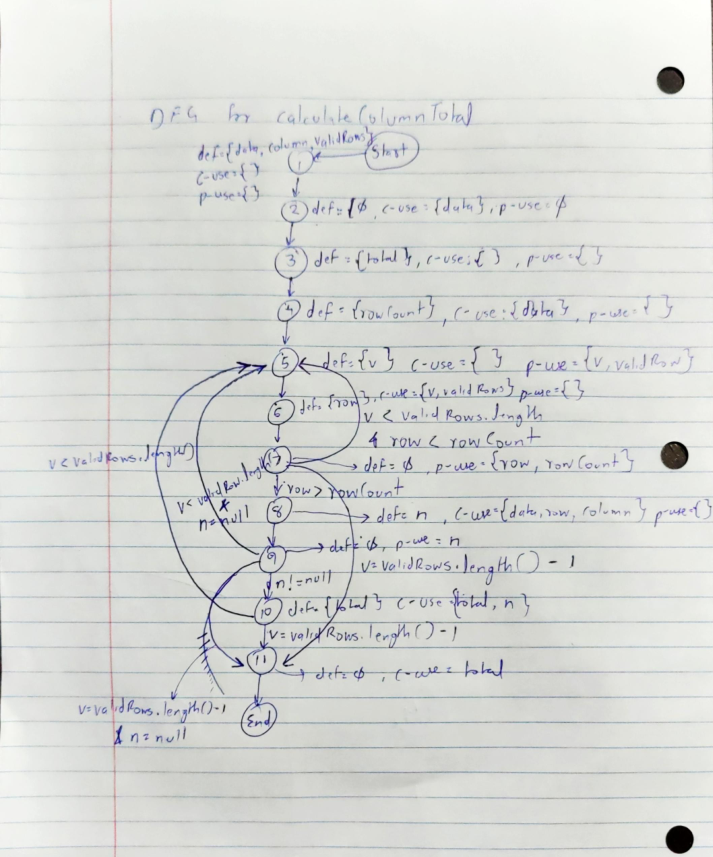 DFG for calculateColumnTotal
def={data, column, validRows}
Start
1
c-use={ }
p-use={ }
2 def={ϕ, c-use={data}, p-use=ϕ
3 def={total}, c-use:{ }, p-use={ }
4 def={rowCount}, c-use:{data}, p-use={ }
5 def={v} c-use={ } p-use={v, validRow}
6 def={row}, c-use={v, validRows} p-use={ }
v < validRows.length
& row < rowCount
v<validRows.length()
7 def=ϕ, p-use={row, rowCount}
v< validRow.length()
&
n=null
row > rowCount
8 def=n, c-use={data, row, column} p-use={}
9 def=ϕ, p-use=n
v=validRows.length() - 1
n!=null
10 def={total} c-use={total, n}
v=validRows.length() - 1
11 def=ϕ, c-use=total
End
v=validRows.length()-1
& n=null